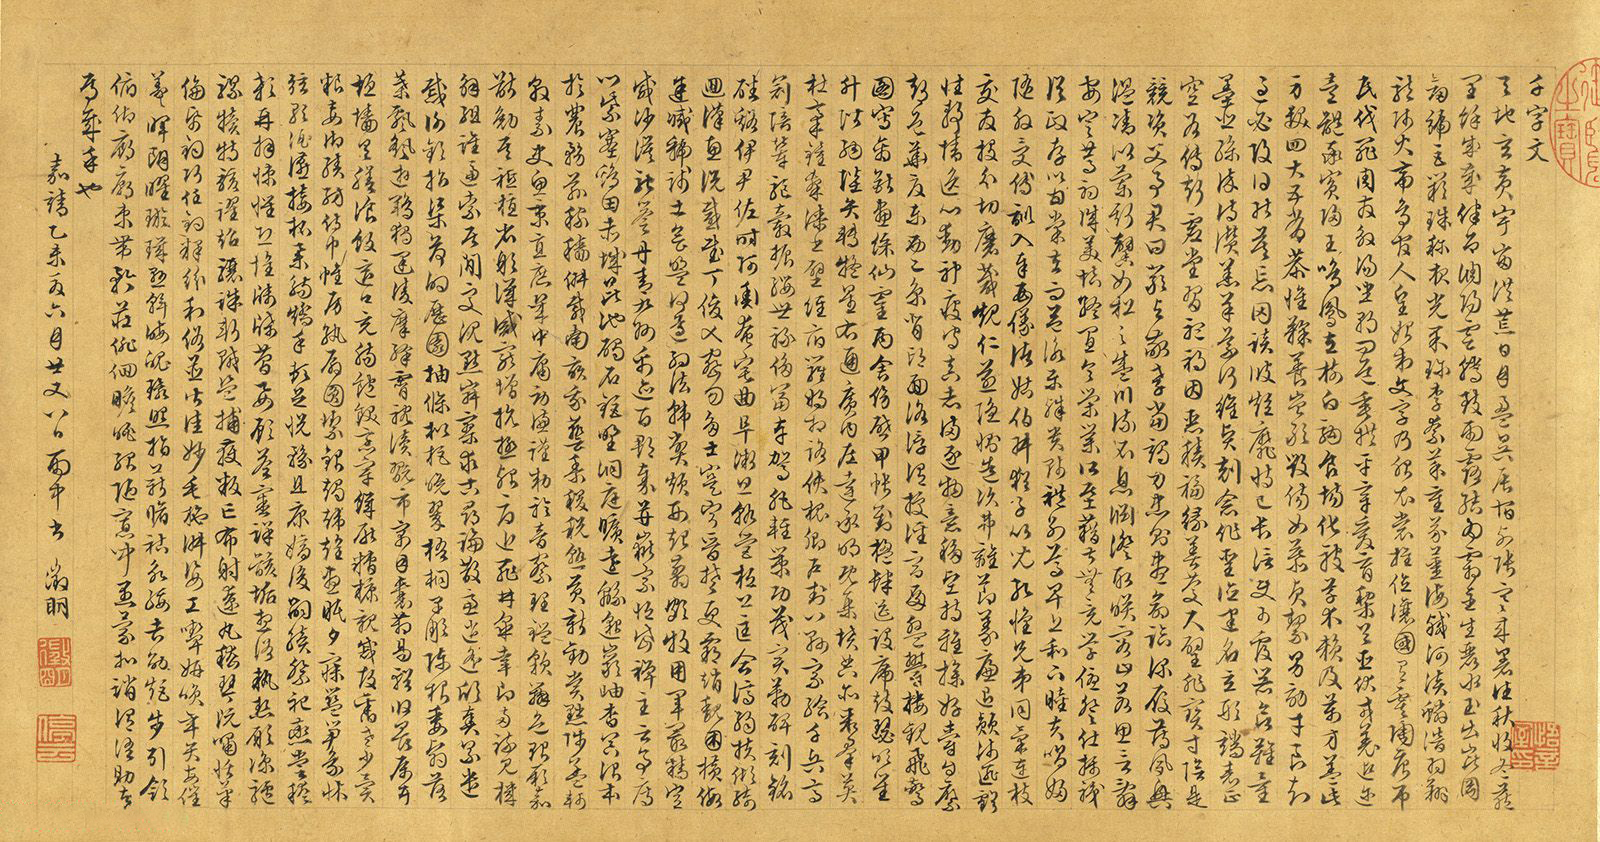 千字文
天地玄黃宇宙洪荒日月盈昃辰宿列張寒來暑往秋收冬藏
閏餘成歲律呂調陽雲騰致雨露結為霜金生麗水玉出崑岡
劍號巨闕珠稱夜光菓珍李柰菜重芥薑海鹹河淡鱗潛羽翔
龍師火帝鳥官人皇始制文字乃服衣裳推位讓國有虞陶唐弔
民伐罪周發殷湯坐朝問道垂拱平章愛育黎首臣伏戎羌遐邇
壹體率賓歸王鳴鳳在樹白駒食場化被草木賴及萬方蓋此
身髮四大五常恭惟鞠養豈敢毀傷女慕貞絜男效才良知
過必改得能莫忘罔談彼短靡恃己長信使可覆器欲難量
墨悲絲染詩讚羔羊景行維賢剋念作聖德建名立形端表正
空谷傳聲虛堂習聽禍因惡積福緣善慶尺璧非寶寸陰是
競資父事君曰嚴與敬孝當竭力忠則盡命臨深履薄夙興
溫凊似蘭斯馨如松之盛川流不息淵澄取映容止若思言辭
安定篤初誠美慎終宜令榮業所基籍甚無竟學優登仕攝職
從政存以甘棠去而益詠樂殊貴賤禮別尊卑上和下睦夫唱婦
隨外受傅訓入奉母儀諸姑伯叔猶子比兒孔懷兄弟同氣連枝
交友投分切磨箴規仁慈隱惻造次弗離節義廉退顛沛匪虧
性靜情逸心動神疲守真志滿逐物意移堅持雅操好爵自縻
都邑華夏東西二京背邙面洛浮渭據涇宮殿盤鬱樓觀飛驚
圖寫禽獸畫綵仙靈丙舍傍啟甲帳對楹肆筵設席鼓瑟吹笙
升階納陛弁轉疑星右通廣內左達承明既集墳典亦聚羣英
杜稾鍾隸漆書壁經府羅將相路俠槐卿戶封八縣家給千兵高
冠陪輦驅轂振纓世祿侈富車駕肥輕策功茂實勒碑刻銘
磻溪伊尹佐時阿衡奄宅曲阜微旦孰營桓公匡合濟弱扶傾綺
迴漢惠說感武丁俊乂密勿多士寔寧晉楚更霸趙魏困橫假
途滅虢踐土會盟何遵約法韓弊煩刑起翦頗牧用軍最精宣
威沙漠馳譽丹青九州禹跡百郡秦并嶽宗恒岱禪主云亭雁
門紫塞雞田赤城昆池碣石鉅野洞庭曠遠緜邈巖岫杳冥治本
於農務茲稼穡俶載南畝我藝黍稷稅熟貢新勸賞黜陟孟軻
敦素史魚秉直庶幾中庸勞謙謹勑聆音察理鑑貌辨色貽厥嘉
猷勉其祗植省躬譏誡寵增抗極殆辱近恥林皋幸即兩疏見機
解組誰逼索居閒處沉默寂寥求古尋論散慮逍遙欣奏累遣
慼謝歡招渠荷的歷園抽條枇杷晚翠梧桐早彫陳根委翳落
葉飄颻遊鵾獨運凌摩絳霄耽讀翫市寓目囊箱易輶攸畏屬耳
垣墻具膳飡飯適口充腸飽飫烹宰飢厭糟糠親戚故舊老少異
糧妾御績紡侍巾帷房紈扇圓潔銀燭煒煌晝眠夕寐藍笋象牀
弦歌酒讌接杯舉觴矯手頓足悅豫且康嫡後嗣續祭祀烝嘗稽
顙再拜悚懼恐惶牋牒簡要顧答審詳骸垢想浴執熱願涼驢
騾犢特駭躍超驤誅斬賊盜捕獲叛亡布射遼丸嵇琴阮嘯恬筆
倫紙鈞巧任釣釋紛利俗並皆佳妙毛施淑姿工顰妍笑年矢每催
羲暉朗曜璇璣懸斡晦魄環照指薪脩祜永綏吉劭矩步引領
俯仰廊廟束帶矜莊徘徊瞻眺孤陋寡聞愚蒙等誚謂語助者
焉哉乎也
嘉靖乙未夏六月廿又八日雨中書 徵明